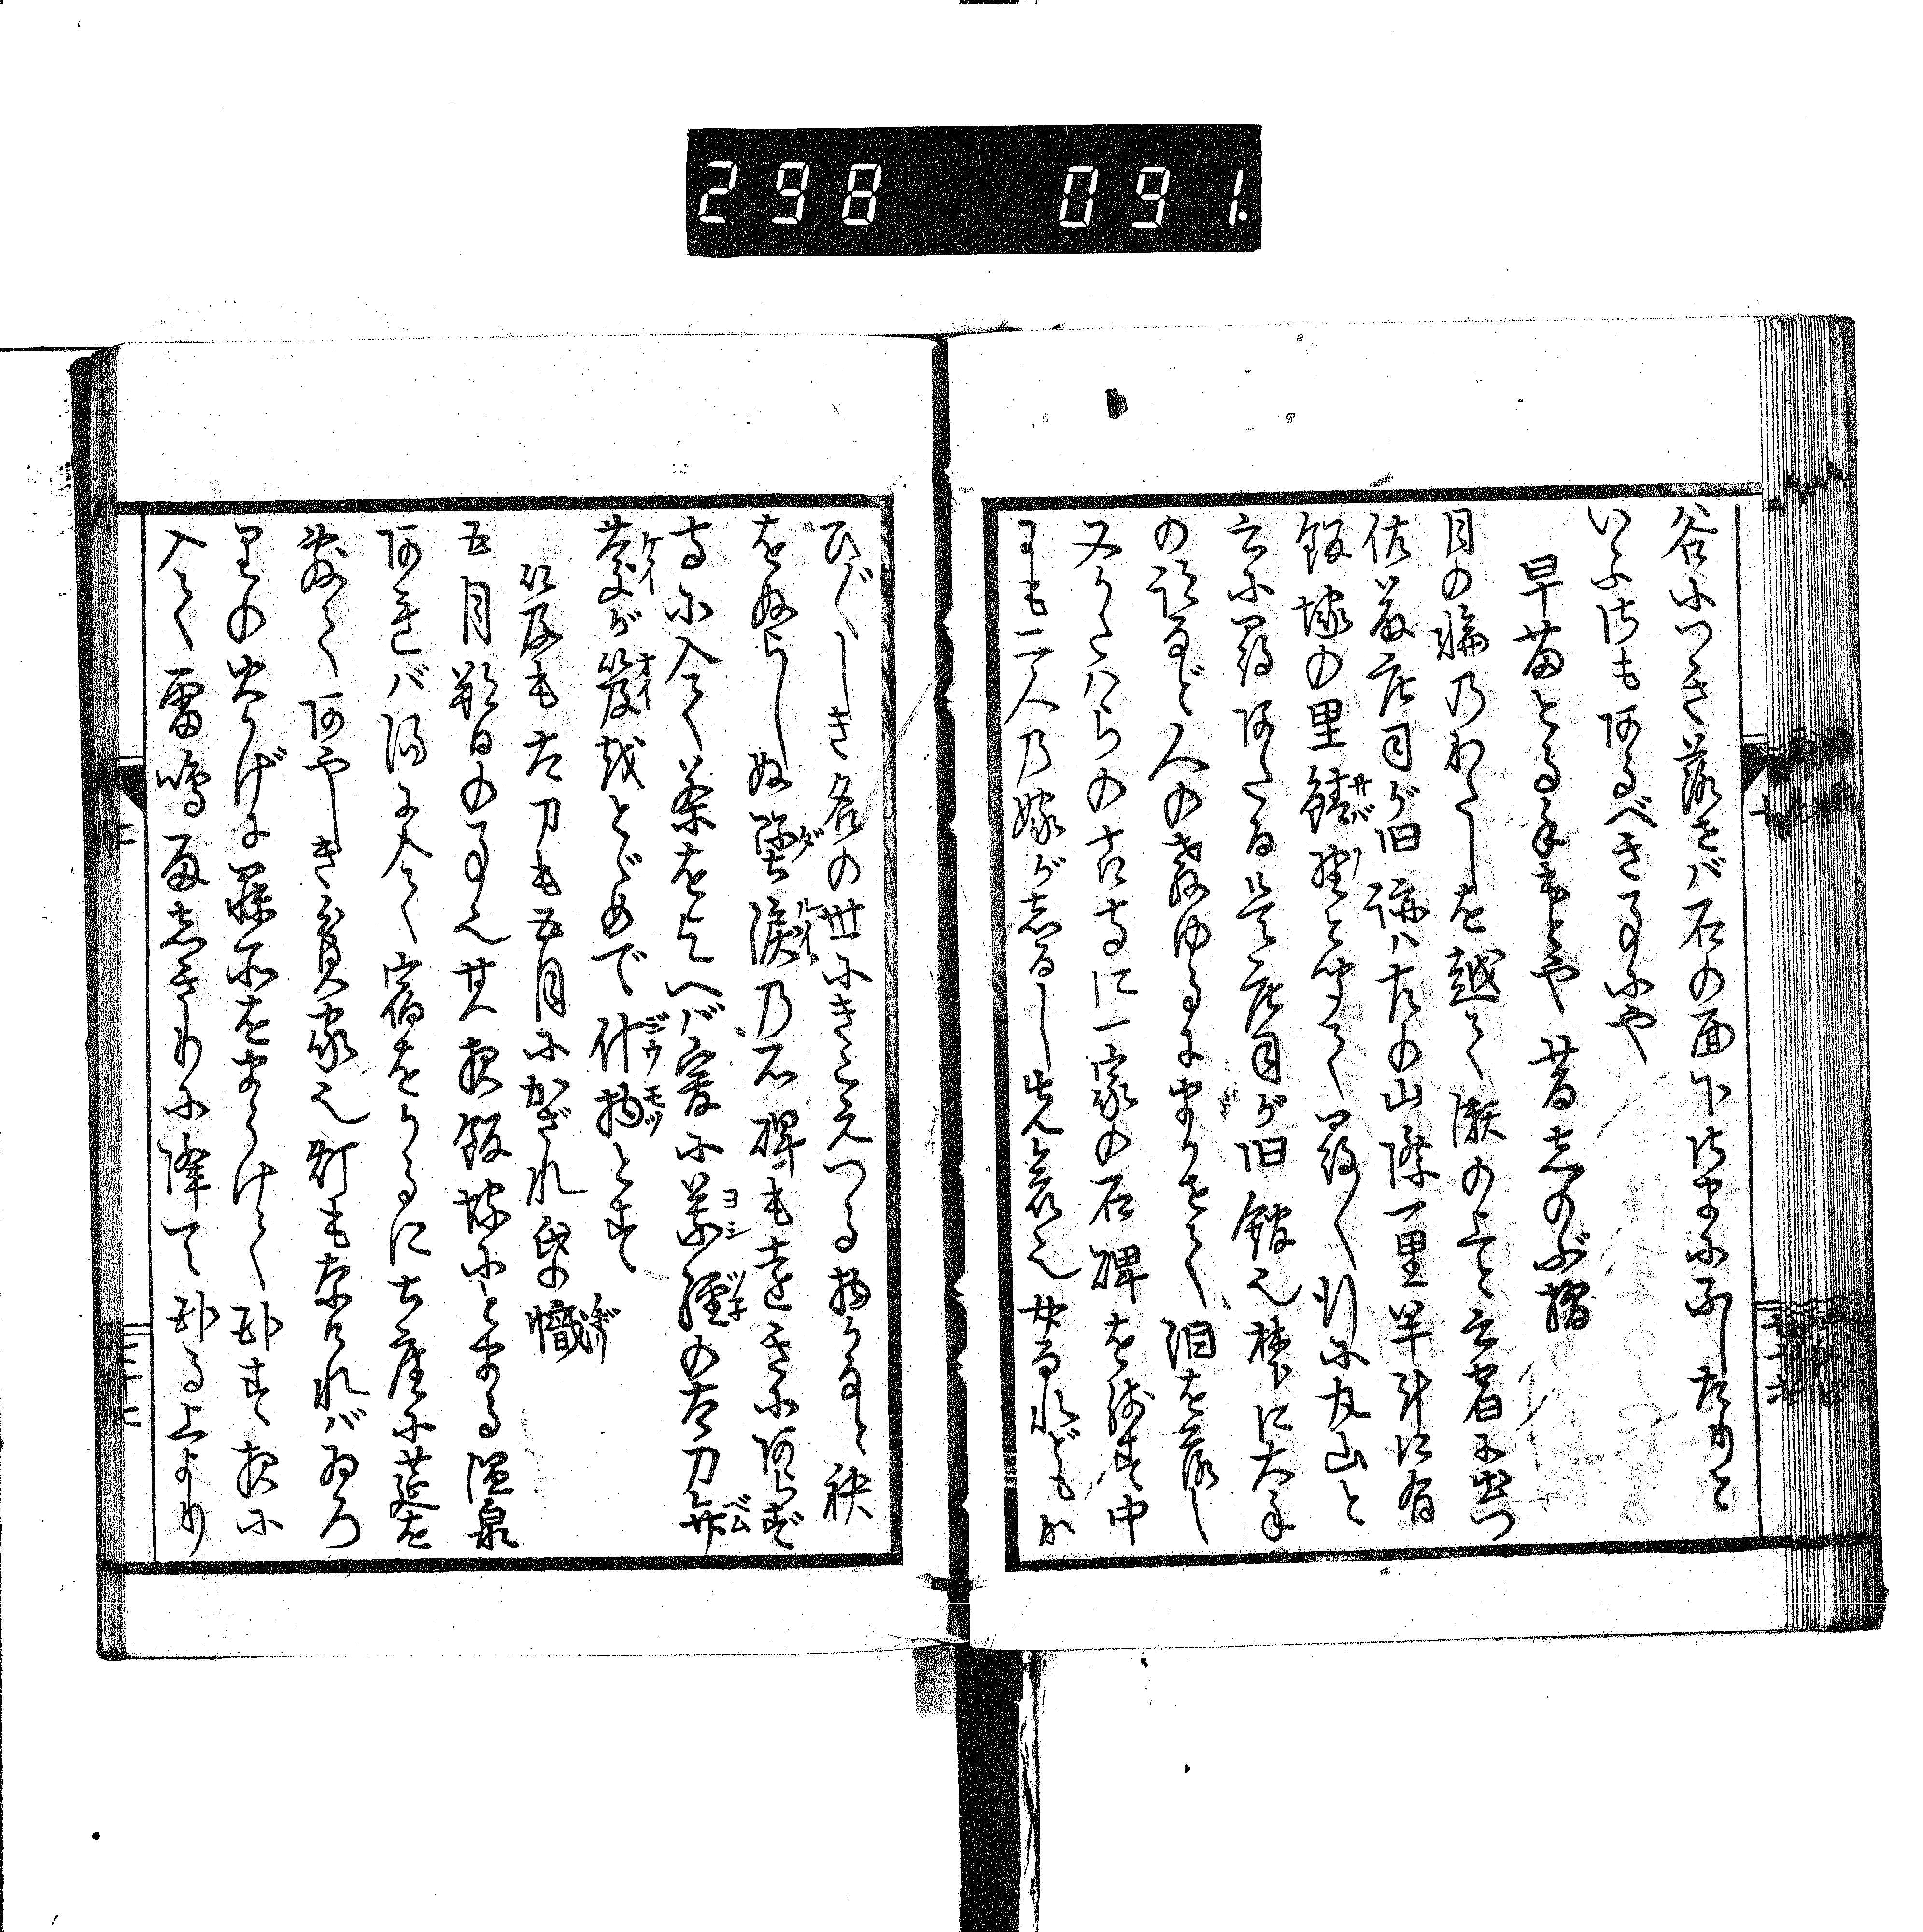 298 091.
谷につき落せバ石の面下さまにふしたりと
いふさも阿るべき事にや
早苗とる手もとや昔しのぶ摺
月の輪乃わたしを越て瀬の上と云宿に出づ
佐藤庄司が旧跡ハ左の山際一里半計に有
飯塚の里鯖野と聞て尋〱行に丸山と
云に尋阿たる是庄司が旧館也梺に大手
の跡など人の教ゆるにまかせて泪を落し
又かたハらの古寺に一家の石碑を残す中
にも二人乃嫁がしるし先哀也女なれどもか
ひ〲しき名の世にきこえつる物かなと袂
をぬらしぬ堕涙乃石碑も遠きに阿らず
寺に入て茶を乞へバ爰に義経の太刀弁
慶が笈越とゞめて什物とす
笈も太刀も五月にかざれ帋の幟
五月朔日の事也其夜飯塚にとまる温泉
阿れバ湯に入て宿をかるに土座に莚を
敷て阿やしき貧家也灯もなけれバゐろ
里の火かげに寐所をまうけて臥す夜に
入て雷鳴雨しきりに降て臥る上より